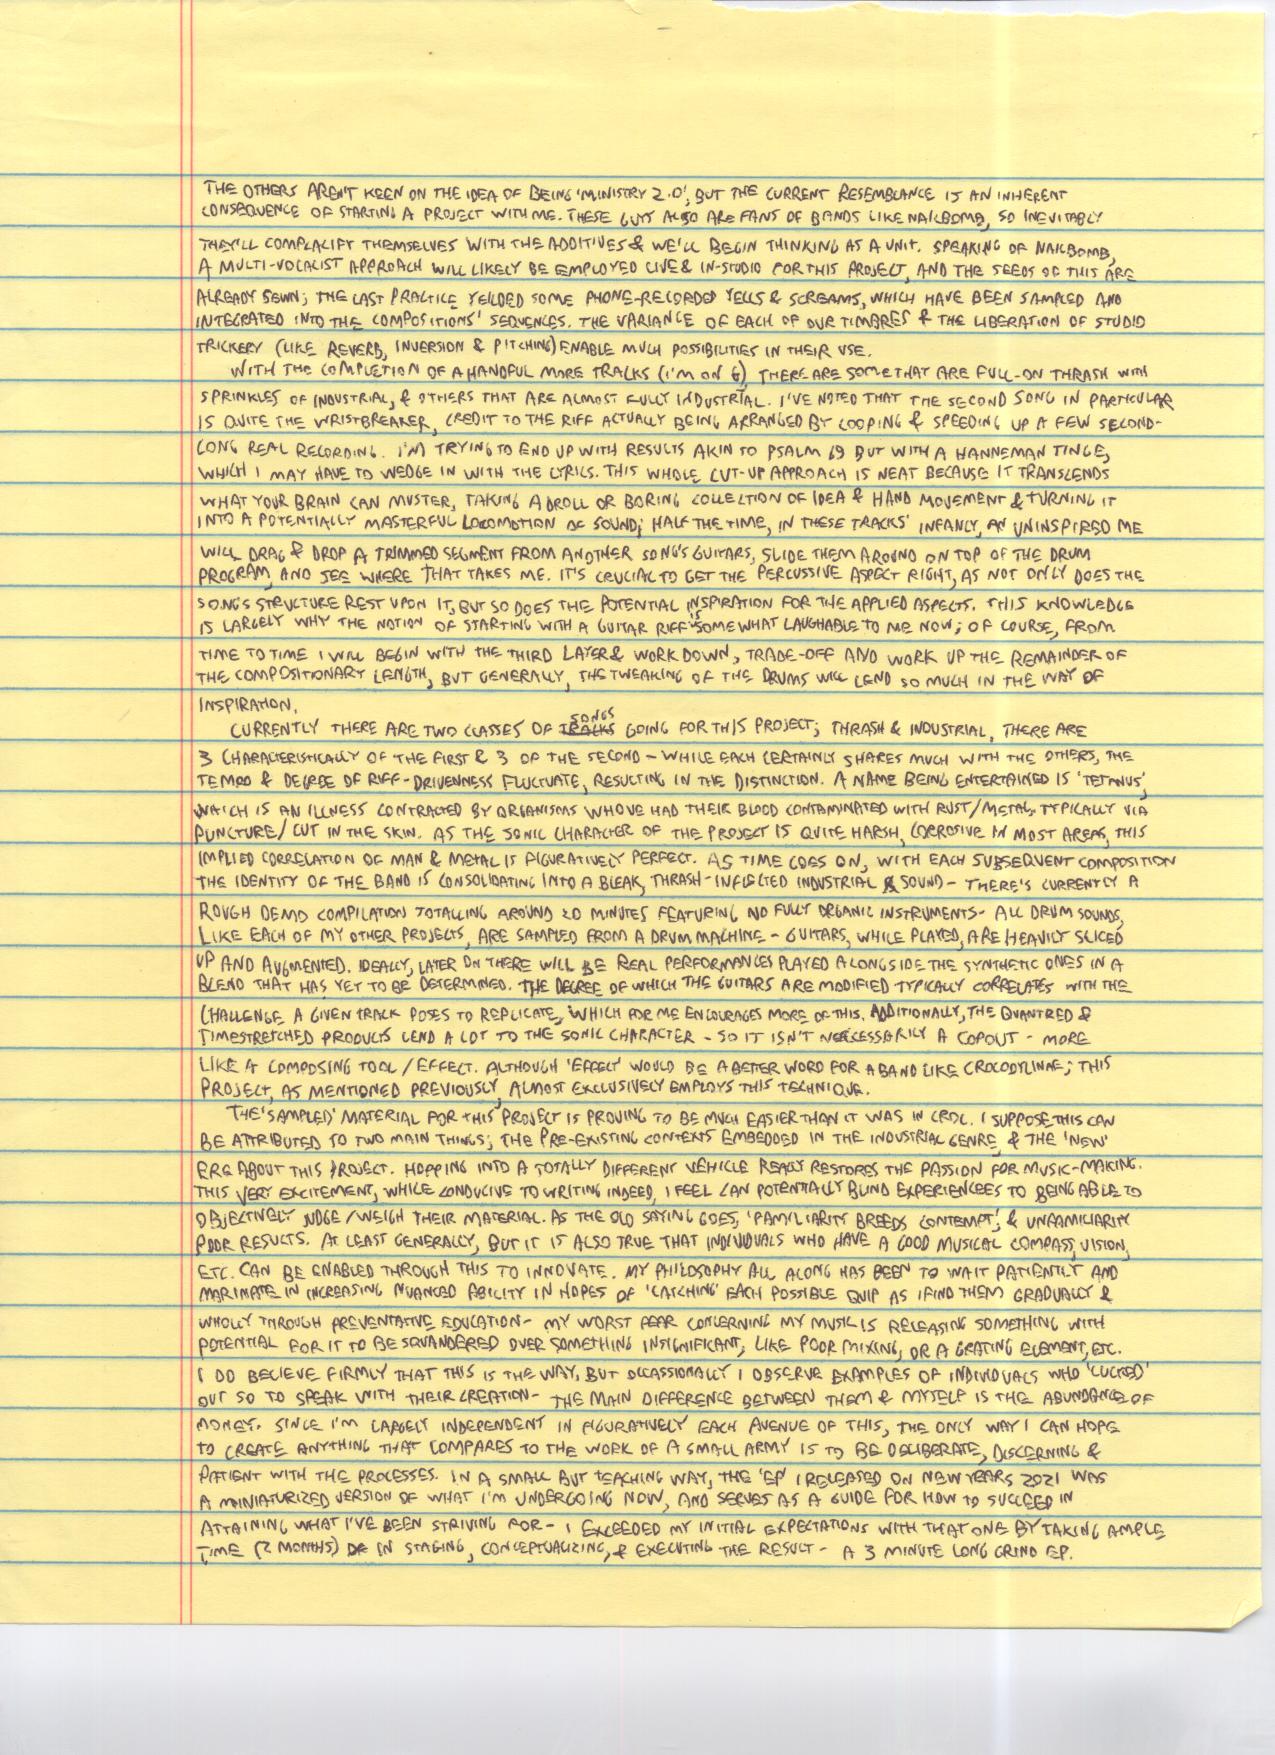 THE OTHERS AREN'T KEEN ON THE IDEA OF BEING 'MINISTRY 2.0', BUT THE CURRENT RESEMBLANCE IS AN INHERENT
CONSEQUENCE OF STARTING A PROJECT WITH ME. THESE GUYS ALSO ARE FANS OF BANDS LIKE NAILBOMB, SO INEVITABLY
THEY'LL COMPLACIFY THEMSELVES WITH THE ADDITIVES & WE'LL BEGIN THINKING AS A UNIT. SPEAKING OF NAILBOMB,
A MULTI-VOCALIST APPROACH WILL LIKELY BE EMPLOYED LIVE & IN-STUDIO FOR THIS PROJECT, AND THE SEEDS OF THIS ARE
ALREADY SEWN; THE LAST PRACTICE YEILDED SOME PHONE-RECORDED YELLS & SCREAMS, WHICH HAVE BEEN SAMPLED AND
INTEGRATED INTO THE COMPOSITIONS' SEQUENCES. THE VARIANCE OF EACH OF OUR TIMBRES & THE LIBERATION OF STUDIO
TRICKERY (LIKE REVERB, INVERSION & PITCHING) ENABLE MUCH POSSIBILITIES IN THEIR USE.
WITH THE COMPLETION OF A HANDFUL MORE TRACKS (I'M ON 6), THERE ARE SOME THAT ARE FULL-ON THRASH WITH
SPRINKLES OF INDUSTRIAL, & OTHERS THAT ARE ALMOST FULLY INDUSTRIAL. I'VE NOTED THAT THE SECOND SONG IN PARTICULAR
IS QUITE THE WRISTBREAKER, CREDIT TO THE RIFF ACTUALLY BEING ARRANGED BY LOOPING & SPEEDING UP A FEW SECOND-
LONG REAL RECORDING. I'M TRYING TO END UP WITH RESULTS AKIN TO PSALM 69 BUT WITH A HANNEMAN TINGE,
WHICH I MAY HAVE TO WEDGE IN WITH THE LYRICS. THIS WHOLE CUT-UP APPROACH IS NEAT BECAUSE IT TRANSCENDS
WHAT YOUR BRAIN CAN MUSTER, TAKING A DROLL OR BORING COLLECTION OF IDEA & HAND MOVEMENT & TURNING IT
INTO A POTENTIALLY MASTERFUL LOCOMOTION OF SOUND; HALF THE TIME, IN THESE TRACKS' INFANCY, AN UNINSPIRED ME
WILL DRAG & DROP A TRIMMED SEGMENT FROM ANOTHER SONG'S GUITARS, SLIDE THEM AROUND ON TOP OF THE DRUM
PROGRAM, AND SEE WHERE THAT TAKES ME. IT'S CRUCIAL TO GET THE PERCUSSIVE ASPECT RIGHT, AS NOT ONLY DOES THE
SONG'S STRUCTURE REST UPON IT, BUT SO DOES THE POTENTIAL INSPIRATION FOR THE APPLIED ASPECTS. THIS KNOWLEDGE
IS LARGELY WHY THE NOTION OF STARTING WITH A GUITAR RIFF IS SOMEWHAT LAUGHABLE TO ME NOW; OF COURSE, FROM
TIME TO TIME I WILL BEGIN WITH THE THIRD LAYER & WORK DOWN, TRADE-OFF AND WORK UP THE REMAINDER OF
THE COMPOSITIONARY LENGTH, BUT GENERALLY, THE TWEAKING OF THE DRUMS WILL LEND SO MUCH IN THE WAY OF
INSPIRATION.
CURRENTLY THERE ARE TWO CLASSES OF SONGS GOING FOR THIS PROJECT; THRASH & INDUSTRIAL, THERE ARE
3 CHARACTERISTICALLY OF THE FIRST & 3 OF THE SECOND - WHILE EACH CERTAINLY SHARES MUCH WITH THE OTHERS, THE
TEMPO & DEGREE OF RIFF-DRIVENNESS FLUCTUATE, RESULTING IN THE DISTINCTION. A NAME BEING ENTERTAINED IS 'TETANUS',
WHICH IS AN ILLNESS CONTRACTED BY ORGANISMS WHOVE HAD THEIR BLOOD CONTAMINATED WITH RUST/METAL, TYPICALLY VIA
PUNCTURE/CUT IN THE SKIN. AS THE SONIC CHARACTER OF THE PROJECT IS QUITE HARSH, CORROSIVE IN MOST AREAS, THIS
IMPLIED CORRELATION OF MAN & METAL IS FIGURATIVELY PERFECT. AS TIME GOES ON, WITH EACH SUBSEQUENT COMPOSITION
THE IDENTITY OF THE BAND IS CONSOLIDATING INTO A BLEAK, THRASH-INFLECTED INDUSTRIAL SOUND - THERE'S CURRENTLY A
ROUGH DEMO COMPILATION TOTALLING AROUND 20 MINUTES FEATURING NO FULLY ORGANIC INSTRUMENTS - ALL DRUM SOUNDS,
LIKE EACH OF MY OTHER PROJECTS, ARE SAMPLED FROM A DRUM MACHINE - GUITARS, WHILE PLAYED, ARE HEAVILY SLICED
UP AND AUGMENTED. IDEALLY, LATER ON THERE WILL BE REAL PERFORMANCES PLAYED ALONGSIDE THE SYNTHETIC ONES IN A
BLEND THAT HAS YET TO BE DETERMINED. THE DEGREE OF WHICH THE GUITARS ARE MODIFIED TYPICALLY CORRELATES WITH THE
CHALLENGE A GIVEN TRACK POSES TO REPLICATE, WHICH FOR ME ENCOURAGES MORE OF THIS. ADDITIONALLY, THE QUANTRED &
TIMESTRETCHED PRODUCTS LEND A LOT TO THE SONIC CHARACTER - SO IT ISN'T NECCESSARILY A COPOUT - MORE
LIKE A COMPOSING TOOL/EFFECT. ALTHOUGH 'EFFECT' WOULD BE A BETTER WORD FOR A BAND LIKE CROCODYLINNE; THIS
PROJECT, AS MENTIONED PREVIOUSLY, ALMOST EXCLUSIVELY EMPLOYS THIS TECHNIQUE.
THE 'SAMPLED' MATERIAL FOR THIS PROJECT IS PROVING TO BE MUCH EASIER THAN IT WAS IN CROC. I SUPPOSE THIS CAN
BE ATTRIBUTED TO TWO MAIN THINGS; THE PRE-EXISTING CONTEXTS EMBEDDED IN THE INDUSTRIAL GENRE, & THE 'NEW'
ERG ABOUT THIS PROJECT. HOPPING INTO A TOTALLY DIFFERENT VEHICLE REALLY RESTORES THE PASSION FOR MUSIC-MAKING.
THIS VERY EXCITEMENT, WHILE CONDUCIVE TO WRITING INDEED, I FEEL CAN POTENTIALLY BLIND EXPERIENCEES TO BEING ABLE TO
OBJECTIVELY JUDGE/WEIGH THEIR MATERIAL. AS THE OLD SAYING GOES, 'FAMILIARITY BREEDS CONTEMPT', & UNFAMILIARITY
POOR RESULTS. AT LEAST GENERALLY, BUT IT IS ALSO TRUE THAT INDIVIDUALS WHO HAVE A GOOD MUSICAL COMPASS, VISION,
ETC. CAN BE ENABLED THROUGH THIS TO INNOVATE. MY PHILOSOPHY ALL ALONG HAS BEEN TO WAIT PATIENTLY AND
MARINATE IN INCREASING NUANCED ABILITY IN HOPES OF 'CATCHING' EACH POSSIBLE QUIP AS I FIND THEM GRADUALLY &
WHOLLY THROUGH PREVENTATIVE EDUCATION - MY WORST FEAR CONCERNING MY MUSIC IS RELEASING SOMETHING WITH
POTENTIAL FOR IT TO BE SQUANDERED OVER SOMETHING INSIGNIFICANT, LIKE POOR MIXING, OR A GRATING ELEMENT, ETC.
I DO BELIEVE FIRMLY THAT THIS IS THE WAY, BUT OCCASSIONALLY I OBSERVE EXAMPLES OF INDIVIDUALS WHO 'LUCKED'
OUT SO TO SPEAK WITH THEIR CREATION - THE MAIN DIFFERENCE BETWEEN THEM & MYSELF IS THE ABUNDANCE OF
MONEY. SINCE I'M LARGELY INDEPENDENT IN FIGURATIVELY EACH AVENUE OF THIS, THE ONLY WAY I CAN HOPE
TO CREATE ANYTHING THAT COMPARES TO THE WORK OF A SMALL ARMY IS TO BE DELIBERATE, DISCERNING &
PATIENT WITH THE PROCESSES. IN A SMALL BUT TEACHING WAY, THE 'EP' I RELEASED ON NEW YEARS 2021 WAS
A MINIATURIZED VERSION OF WHAT I'M UNDERGOING NOW, AND SERVES AS A GUIDE FOR HOW TO SUCCEED IN
ATTAINING WHAT I'VE BEEN STRIVING FOR - I EXCEEDED MY INITIAL EXPECTATIONS WITH THAT ONE BY TAKING AMPLE
TIME (2 MONTHS) IN STAGING, CONCEPTUALIZING, & EXECUTING THE RESULT - A 3 MINUTE LONG GRIND EP.